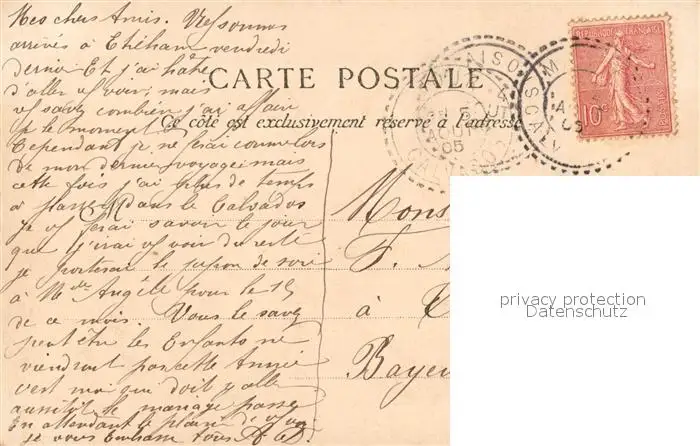 Mes chers Amis. Ns sommes
arrivés à Ethéham vendredi
dernier Et j'ai hâte
d'aller vs voir, mais
vs savez combien j'ai affaire
pr le moment
Cependant je ne ferai comme lors
de mon dernier voyage mais
cette fois j'ai plus de temps
à passer dans le Calvados
Je vs ferai savoir le jour
que j'irai vs voir du reste
je porterai le jupon de soie
à Mlle Angèle pour le 15
de ce mois. Vous le savez
peut être les Enfants ne
viendront pas cette Année
c'est moi qui doit y aller
aussitôt le mariage passé
En attendant le plaisir d vs voir
je vous Embrasse tous
CARTE POSTALE
Ce côté est exclusivement réservé à l'adresse
REPUBLIQUE FRANÇAISE
10c
POSTES
AOUT
05
CALVADOS
Mons
F.
à
Bayeu
privacy protection
Datenschutz